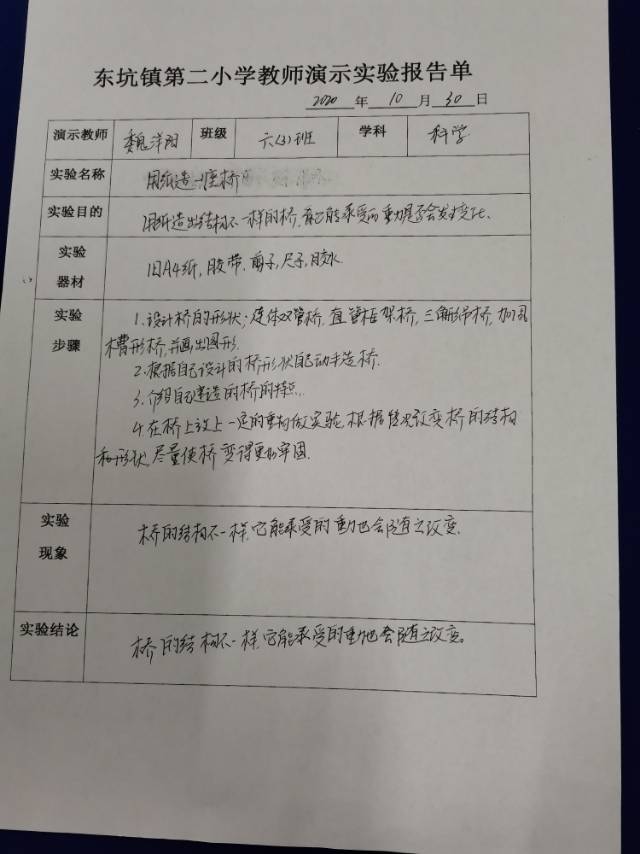 东坑镇第二小学教师演示实验报告单
2020 年 10 月 30 日
演示教师 魏洋阳 班级 六(3)班 学科 科学
实验名称 用纸造一座桥
实验目的 用纸造出结构不一样的桥,看它能承受的重力是否会发生变化.
实验器材 旧A4纸,胶带,剪子,尺子,胶水
实验步骤 1.设计桥的形状:连体双管桥,直管框架桥,三角形吊桥,加固
槽形桥,并画出图形.
2.根据自己设计的桥形状自己动手造桥.
3.介绍自己建造的桥的特点.
4.在桥上放上一定的重物做实验,根据情况改变桥的结构
和形状,尽量使桥变得更加牢固.
实验现象 桥的结构不一样,它能承受的重力也会随之改变.
实验结论 桥的结构不一样,它能承受的重力也会随之改变。